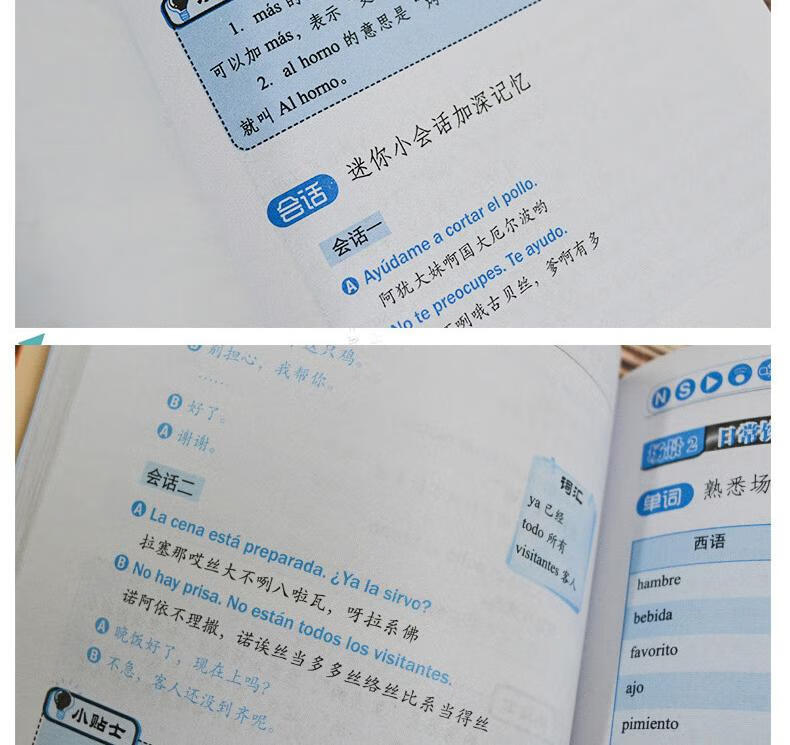 1. más 的
可以加 más，表示
2. al horno 的意思是
就叫 Al horno。
会话 迷你小会话加深记忆
会话一
A Ayúdame a cortar el pollo.
阿犹大妹啊国大厄尔波哟
No te preocupes. Te ayudo.
咧哦古贝丝，爹啊有多
这只鸡。
别担心，我帮你。
……
B 好了。
A 谢谢。
会话二
A La cena está preparada. ¿Ya la sirvo?
拉塞那哎丝大不咧八啦瓦，呀拉系佛
B No hay prisa. No están todos los visitantes.
诺阿依不理撒，诺诶丝当多多丝络丝比系当得丝
A 晚饭好了，现在上吗？
B 不急，客人还没到齐呢。
小贴士
词汇
ya 已经
todo 所有
visitantes 客人
N S
场景 2 日常
单词 熟悉场
西语
hambre
bebida
favorito
ajo
pimiento